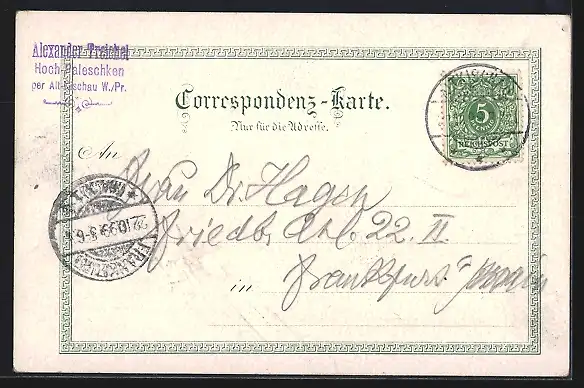 Alexander Treichel
Hoch-Paleschken
per Alt-Kischau W./Pr.
Correspondenz-Karte.
Nur für die Adresse.
5
REICHSPOST
An
Frau Dr. Hagen
Friedb. Anl. 22. II
in Frankfurt Main
22.10.99.5-6
FRANKFURT